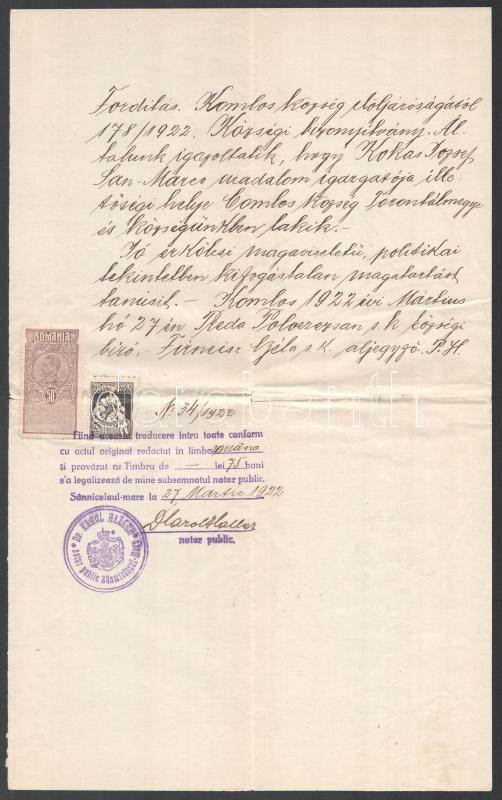 Fordítás. Komlos község elöljáróságától
178/1922. Községi bizonyítvány. Ál-
talunk igazoltatik, hogy Kokas József
San-Marco uradalom igazgatója ille-
tőségi helye Comlos község Torontálmegye
és községünkben lakik.-
Jó erkölcsi magaviseletü, politikai
tekintetben kifogástalan magatartást
tanusit. - Komlos 1922 évi Mártius
hó 27 én Reda s. k. községi
biró. s. k. aljegyző. P. H.
ROMANIA
30
No 34/1922
Fiind această traducere intru toate conform
cu actul original redactat in limba română
și provăzut cu Timbru de — lei 75 bani
s'a legalizează de mine subsemnatul notar public.
Sânnicolaul-mare la 27 Martie 1922
notar public.
notar public
darabanth